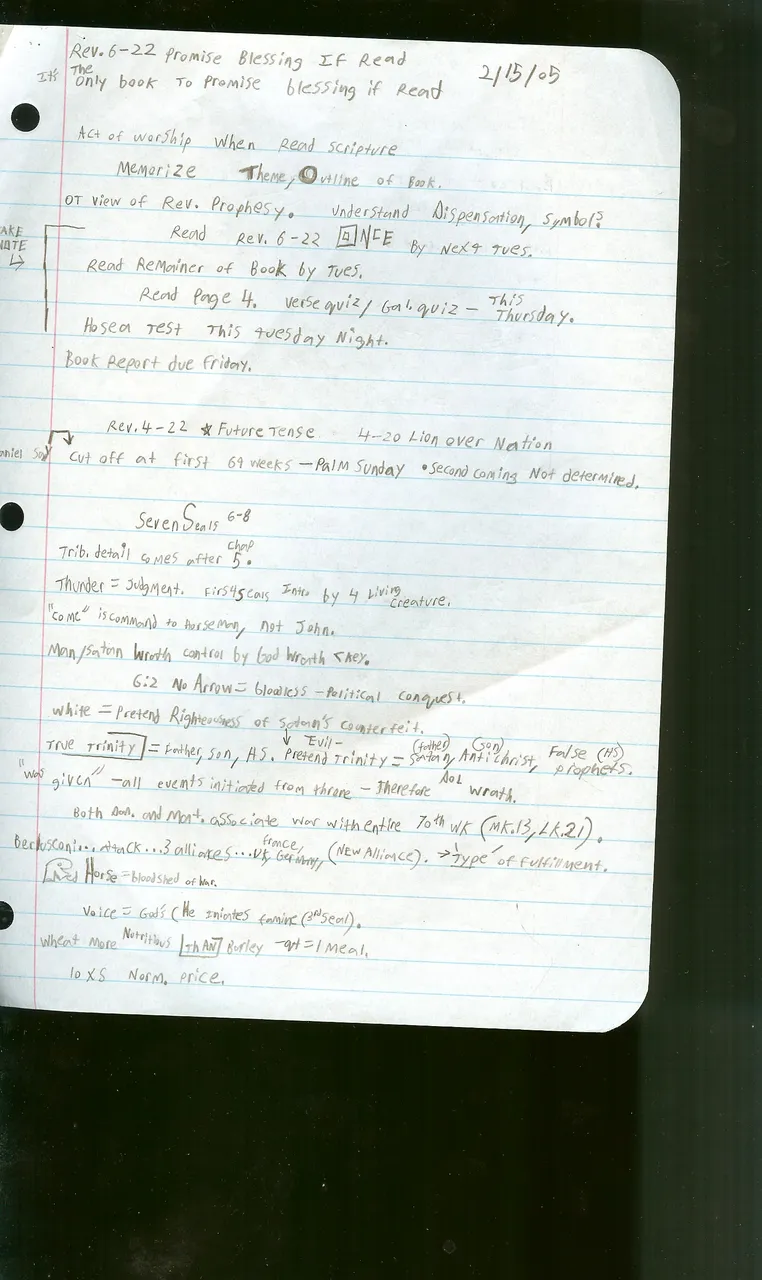 Rev. 6-22 Promise Blessing If Read
2/15/05
It's The only book To Promise blessing if Read
Act of worship when Read Scripture
Memorize Theme, Outline of Book.
OT view of Rev. Prophesy. Understand Dispensation, Symbol?
AKE
NOTE
Read Rev. 6-22 ONCE By Next Tues.
Read Remainer of Book by Tues.
Read Page 4. Verse quiz/ Gal. quiz - This Thursday.
Hosea Test This Tuesday Night.
Book Report due Friday.
Rev. 4-22 ★ Future Tense 4-20 Lion over Nation
aniel Say Cut off at first 69 weeks - Palm Sunday • Second coming Not determined.
Seven Seals 6-8
Trib. detail comes after Chap 5.
Thunder = Judgment. First 4 Seals Intro by 4 Living Creature.
"Come" is command to Horseman, not John.
Man/Satan Wrath control by God Wrath
6:2 No Arrow = bloodless - Political Conquest.
White = Pretend Righteousness of Satan's counterfeit.
True Trinity = Father, Son, HS. ↓ Evil - Pretend Trinity = (father) Satan, (Son) Antichrist, False (HS) prophets.
"was given" - all events initiated from throne - Therefore Wrath.
Both Dan. and Matt. associate war with entire 70th wk (Mk. 13, Lk. 21).
Berlusconi... Attack... 3 alliances... UK, France, Germany, (New Alliance). → 'Type' of fulfillment.
Red Horse = bloodshed of war.
Voice = God's (He iniates famine (3rd Seal).
Wheat more Nutritious ThAN Barley - qt = 1 Meal.
10 XS Norm. price.